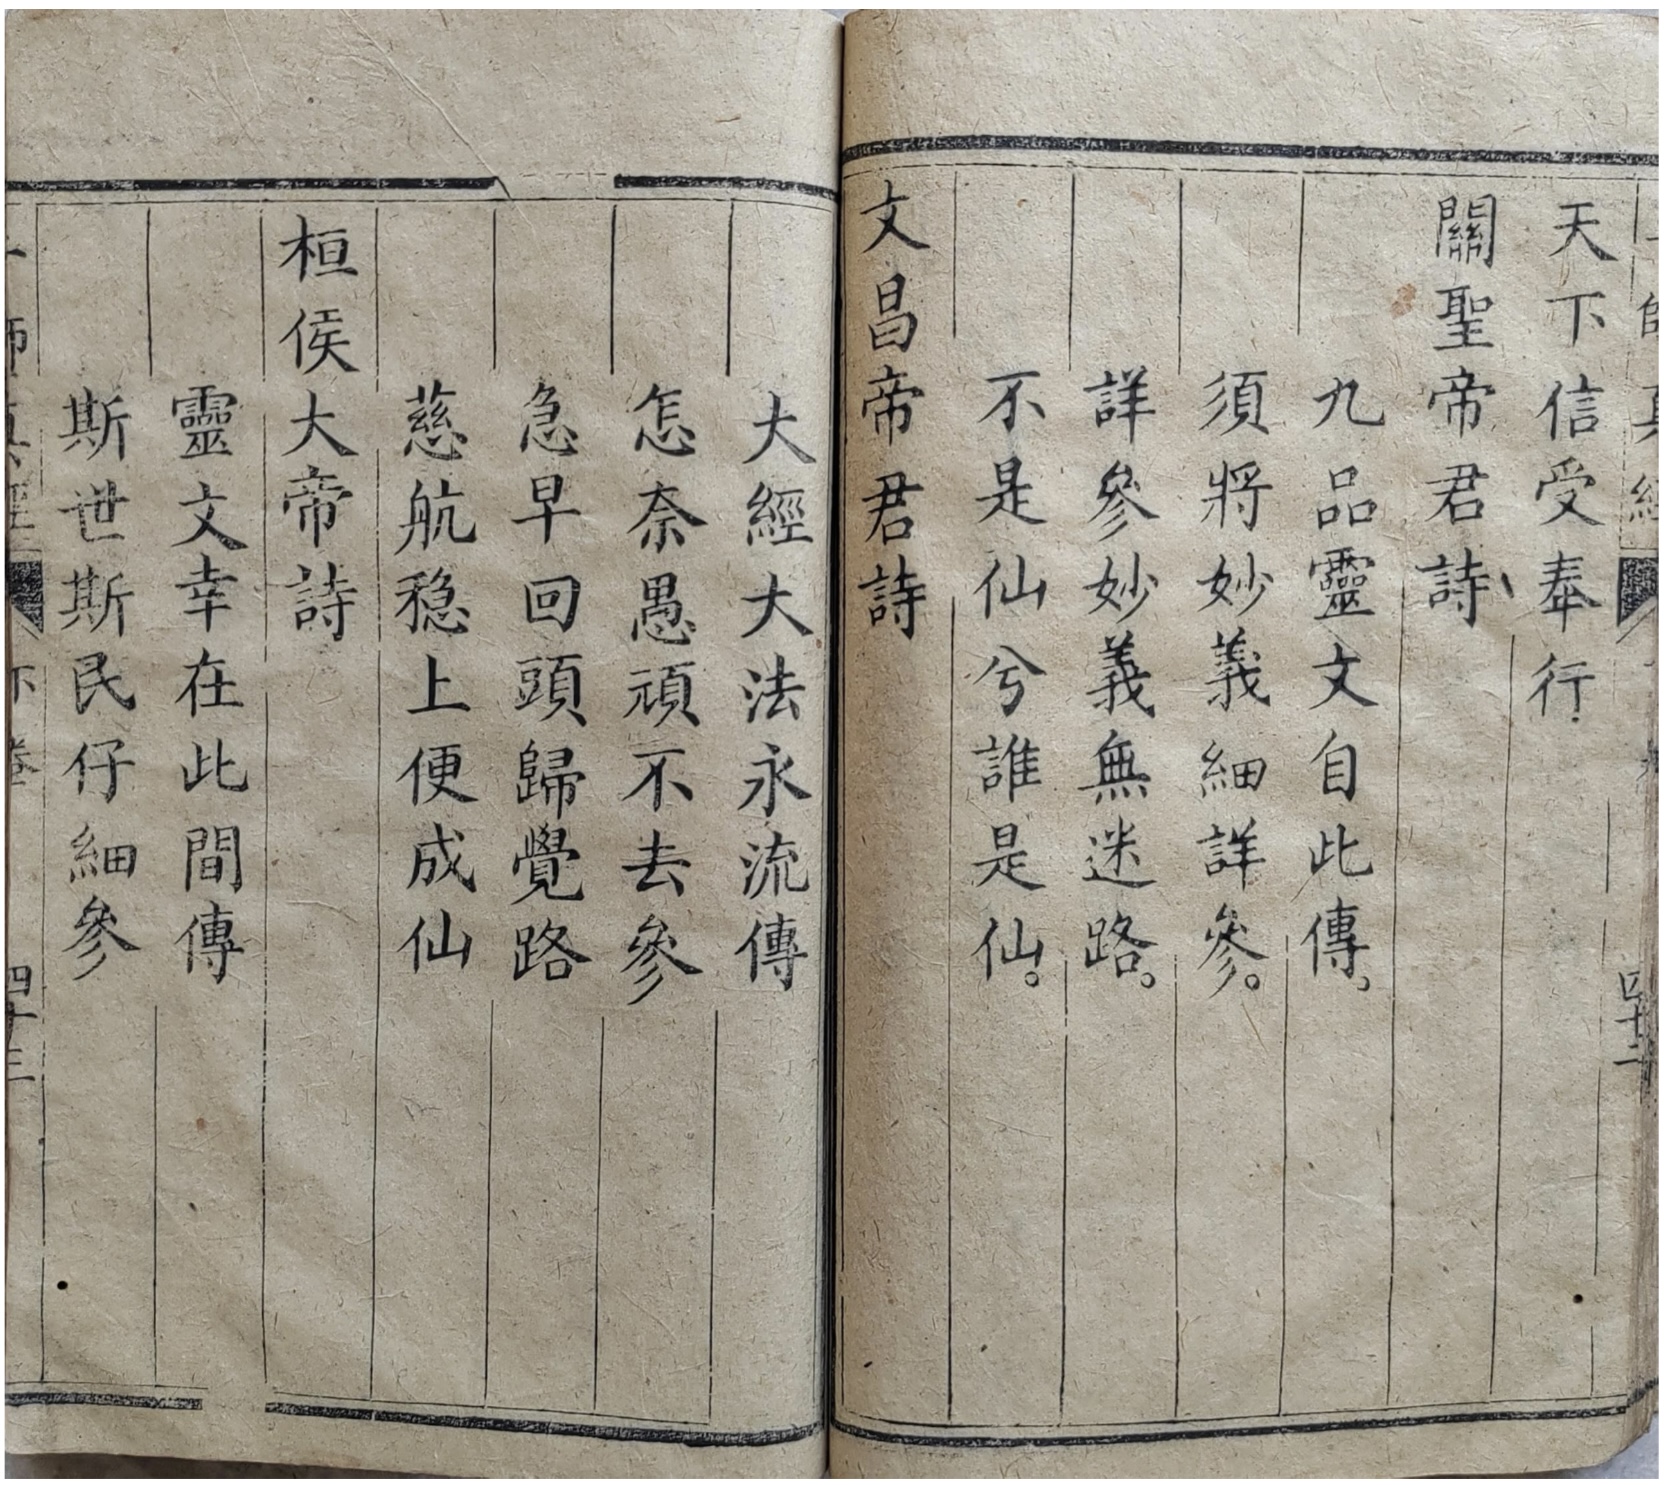 天下信受奉行
關聖帝君詩
九品靈文自此傳
須將妙義細詳參。
詳參妙義無迷路。
不是仙兮誰是仙。
文昌帝君詩
大經大法永流傳
怎奈愚頑不去參
急早回頭歸覺路
慈航稳上便成仙
桓侯大帝詩
靈文幸在此間傳
斯世斯民仔細參
四十三